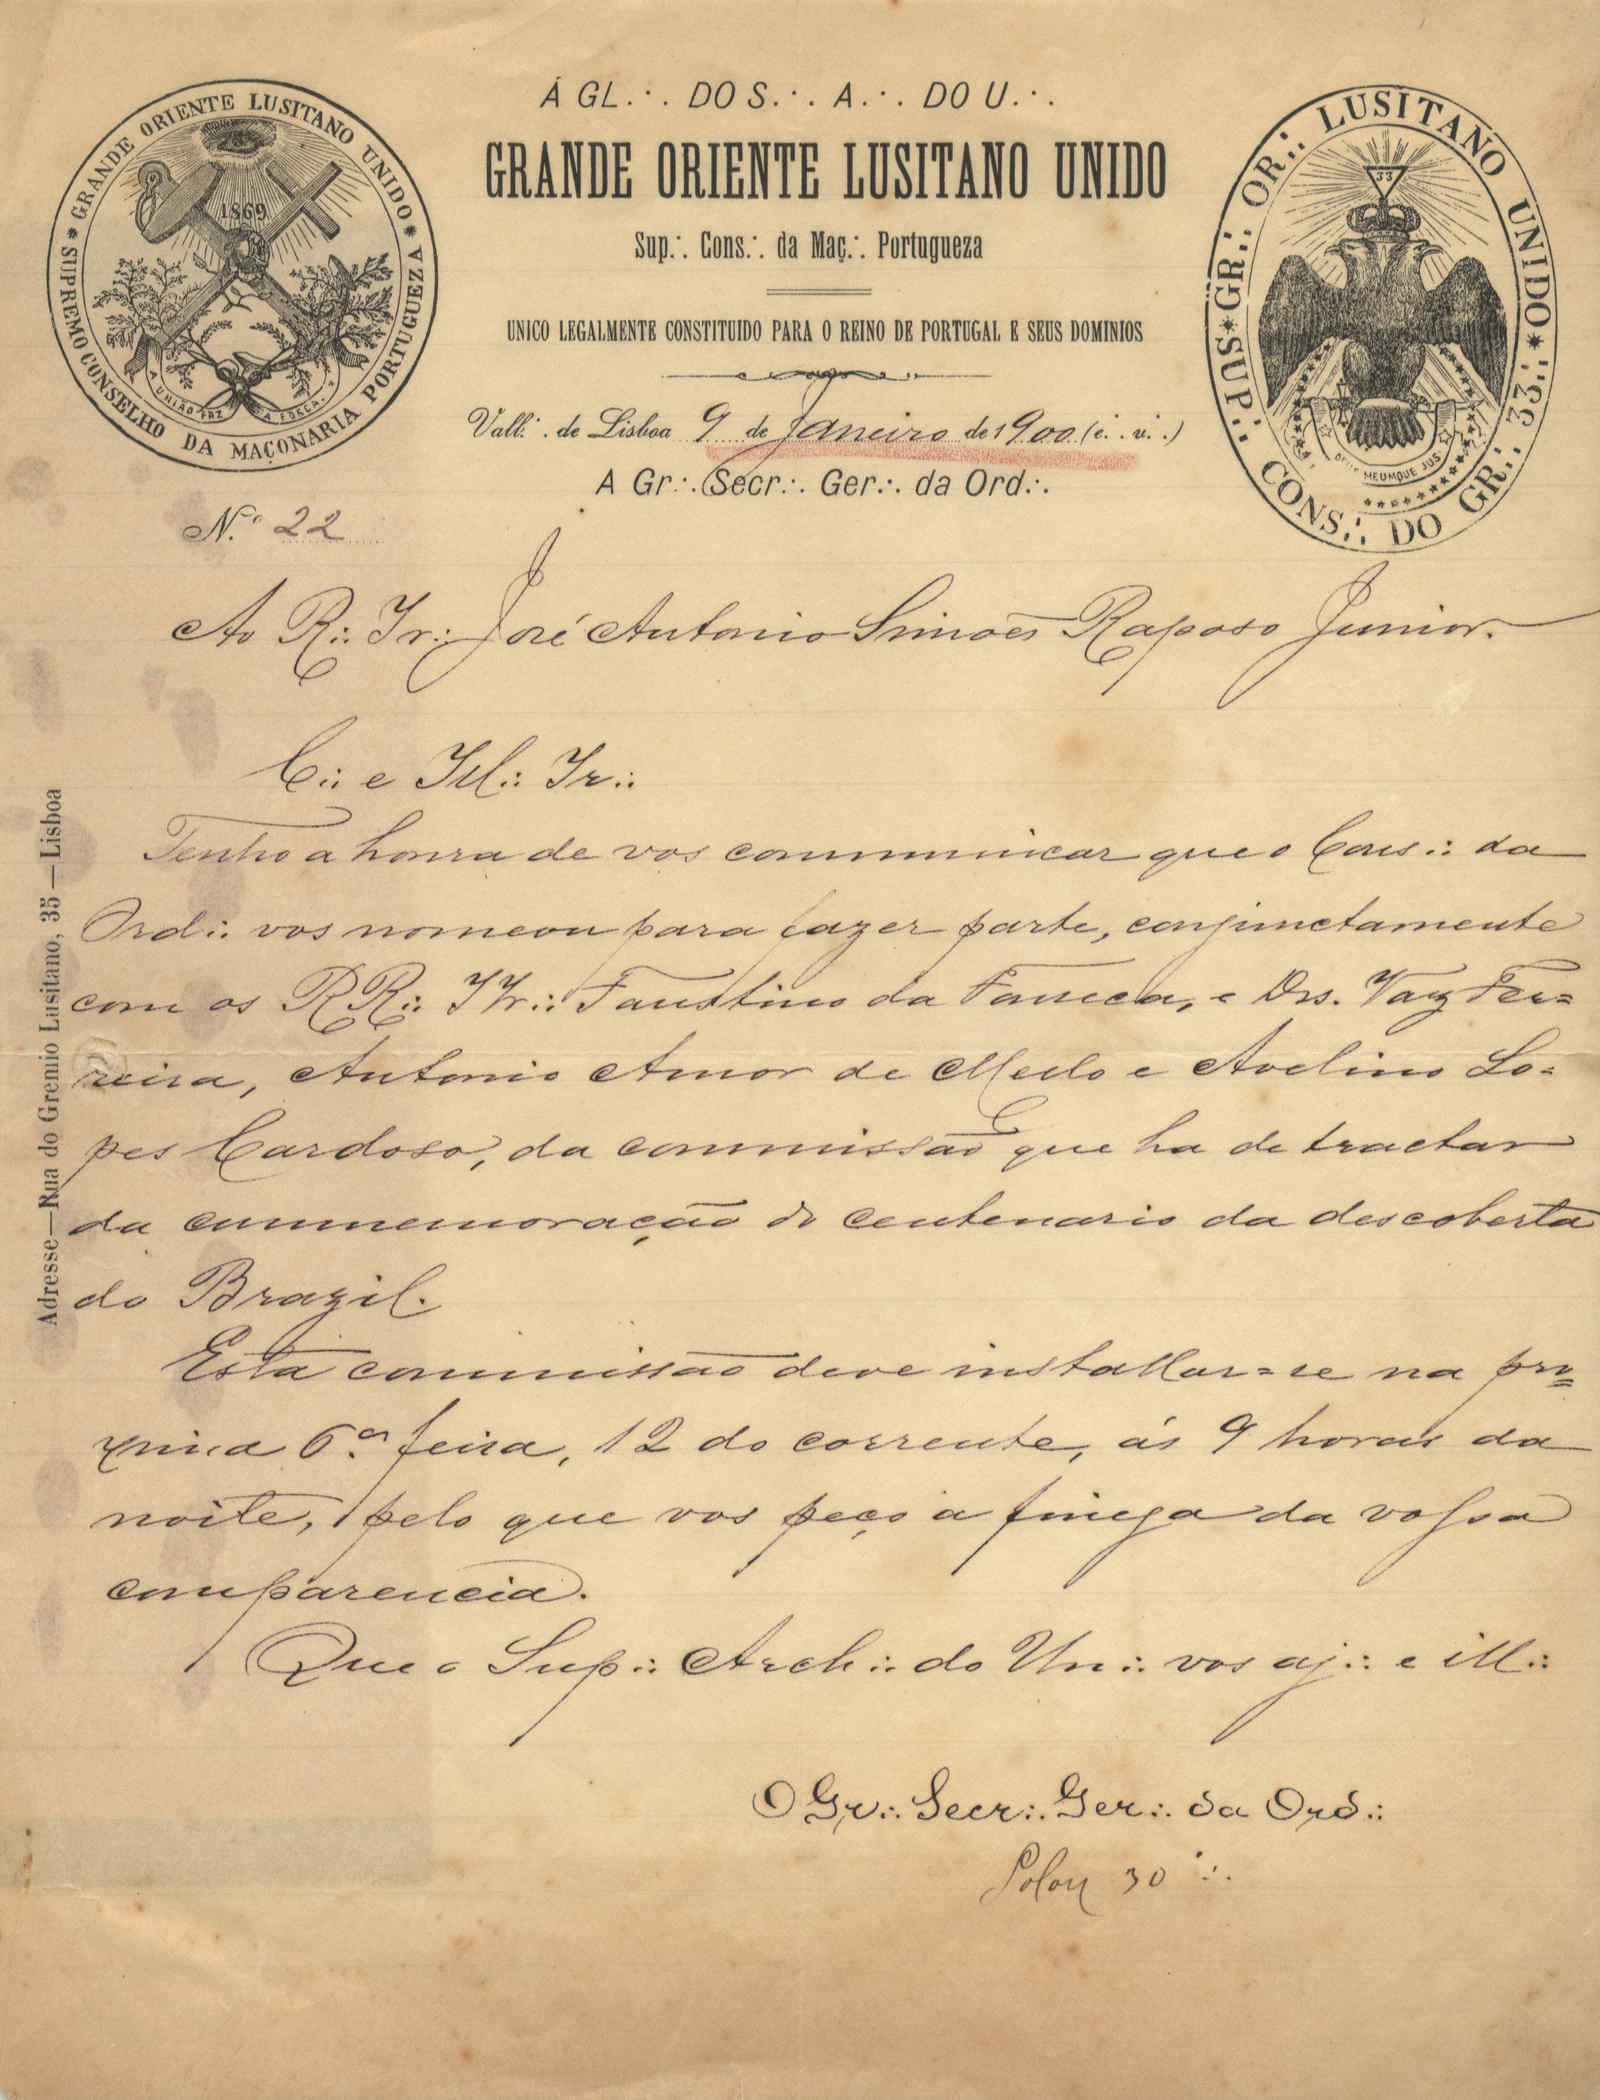 Á GL.·. DO S.·. A.·. DO U.·.
GRANDE ORIENTE LUSITANO UNIDO
Sup.·. Cons.·. da Maç.·. Portugueza
UNICO LEGALMENTE CONSTITUIDO PARA O REINO DE PORTUGAL E SEUS DOMINIOS
Vall.·. de Lisboa 9 de Janeiro de 1900 (e.·. v.·.)
A Gr.·. Secr.·. Ger.·. da Ord.·.
GRANDE ORIENTE LUSITANO UNIDO
SUPREMO CONSELHO DA MAÇONARIA PORTUGUEZA
1869
A UNIÃO FAZ A FORÇA
GR.·. OR.·. LUSITANO UNIDO
SUP.·. CONS.·. DO GR.·. 33.·.
33
MEUMQUE JUS
N.º 22
Ao R.·. Ir.·. José Antonio Simões Raposo Junior.
C.·. e Ill.·. Ir.·.
Tenho a honra de vos communicar que o Cons.·. da
Ord.·. vos nomeou para fazer parte, conjunctamente
com os RR.·. IIr.·. Faustino da Fonseca, e Drs. Vaz Fer=
reira, Antonio Amor de Mello e Avelino Lo=
pes Cardoso, da commissão que ha de tractar
da commemoração do centenario da descoberta
do Brazil.
Esta commissão deve installar=se na pro=
xima 6.ª feira, 12 do corrente, ás 9 horas da
noite, pelo que vos peço a fineza da vossa
comparencia.
Que o Sup.·. Arch.·. do Un.·. vos aj.·. e ill.·.
O Gr.·. Secr.·. Ger.·. da Ord.·.
30.·.
Adresse—Rua do Gremio Lusitano, 35—Lisboa